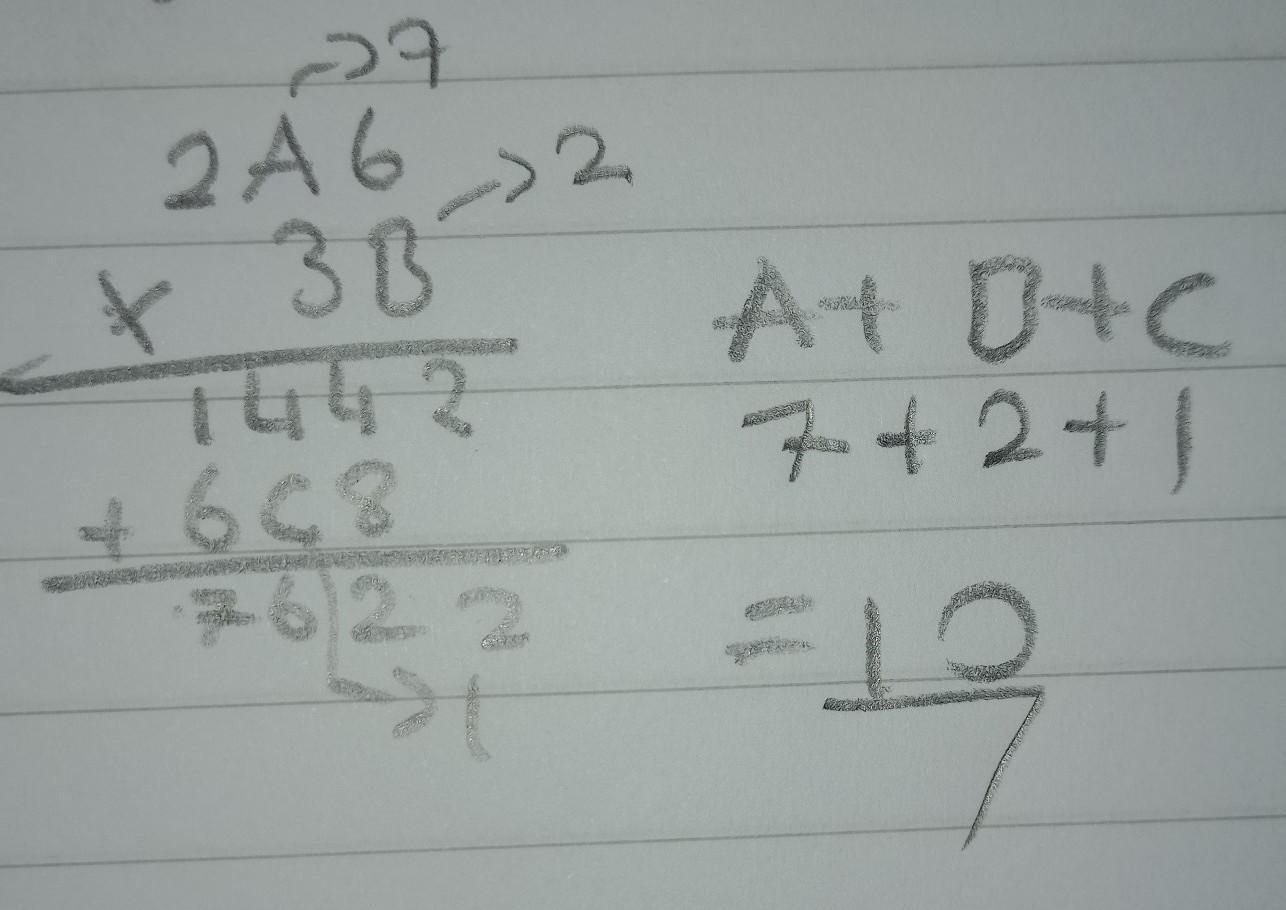 →7
2A6
→2
× 3B
1442
+ 6C8
7622
→1
A+ B+C
7+2+1
=10